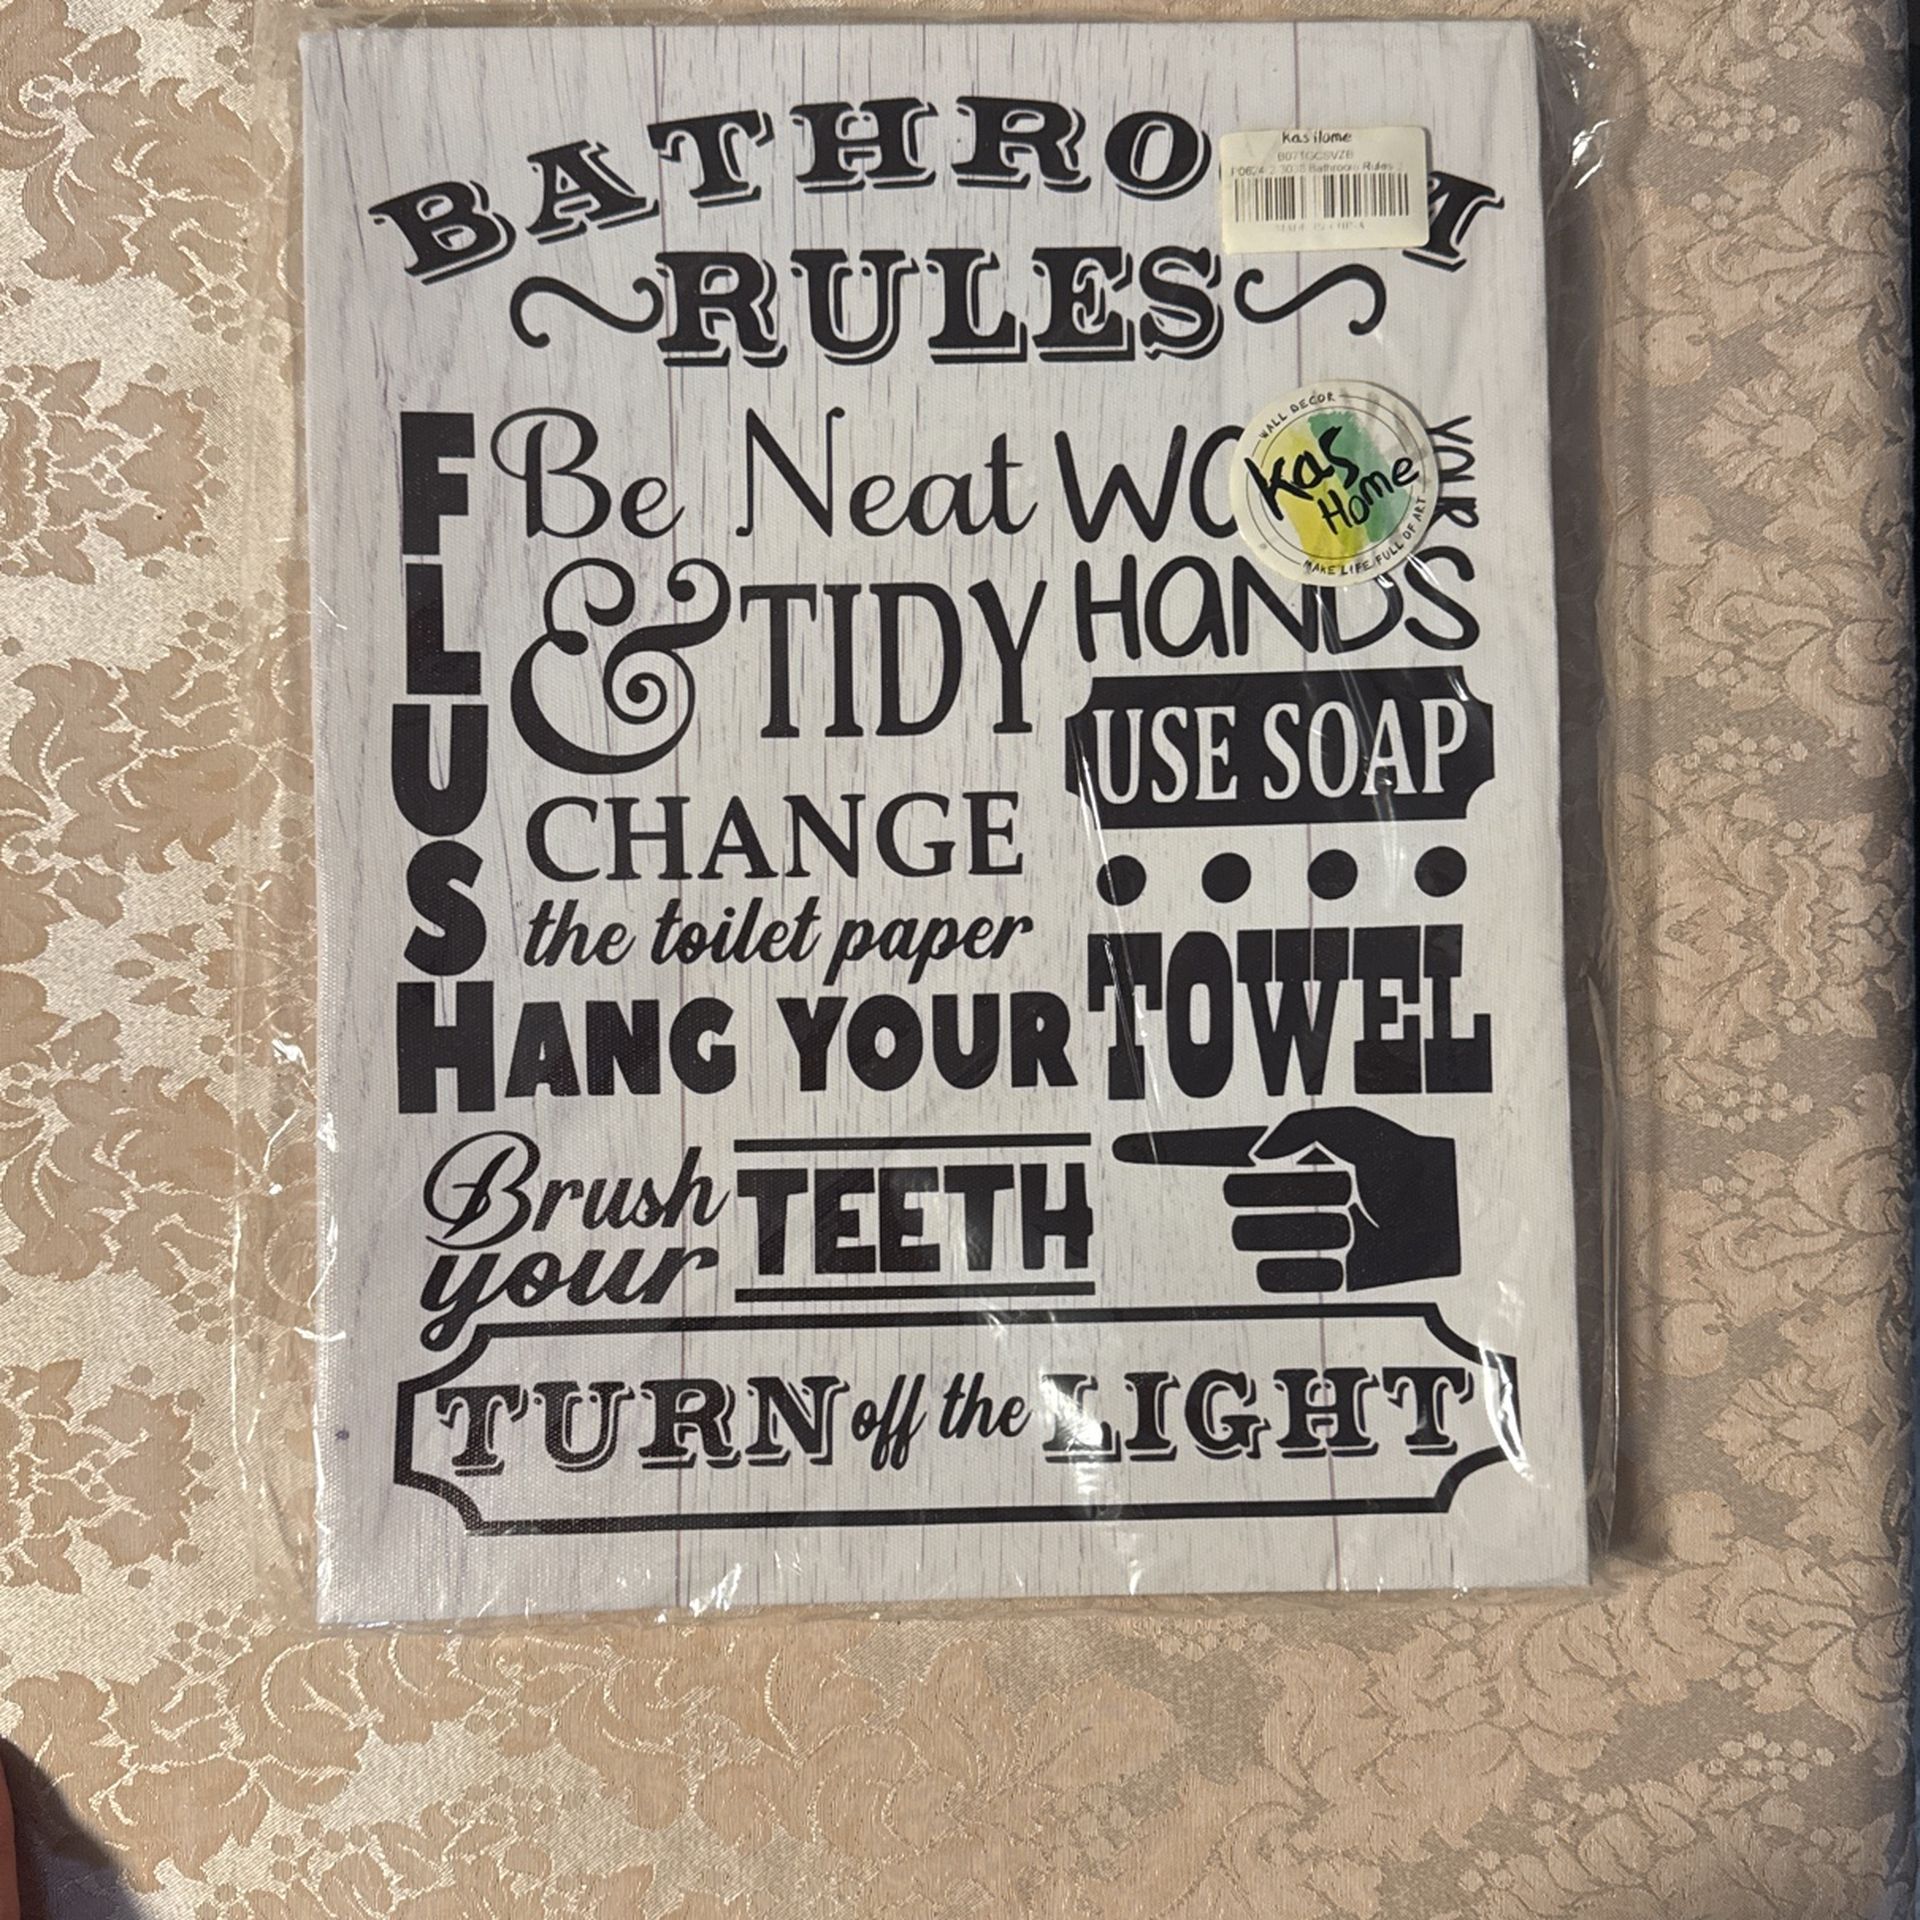 BATHRO M
RULES
Kas Home
B071GCSVZB
Bathroom Rules
MADE IN CHINA
FLUSH
Be Neat
& TIDY
CHANGE
the toilet paper
HANG YOUR TOWEL
WO
YOUR
HANDS
WALL DECOR
Kas
Home
MAKE LIFE FULL OF ART
USE SOAP
Brush
your
TEETH
TURN off the LIGHT